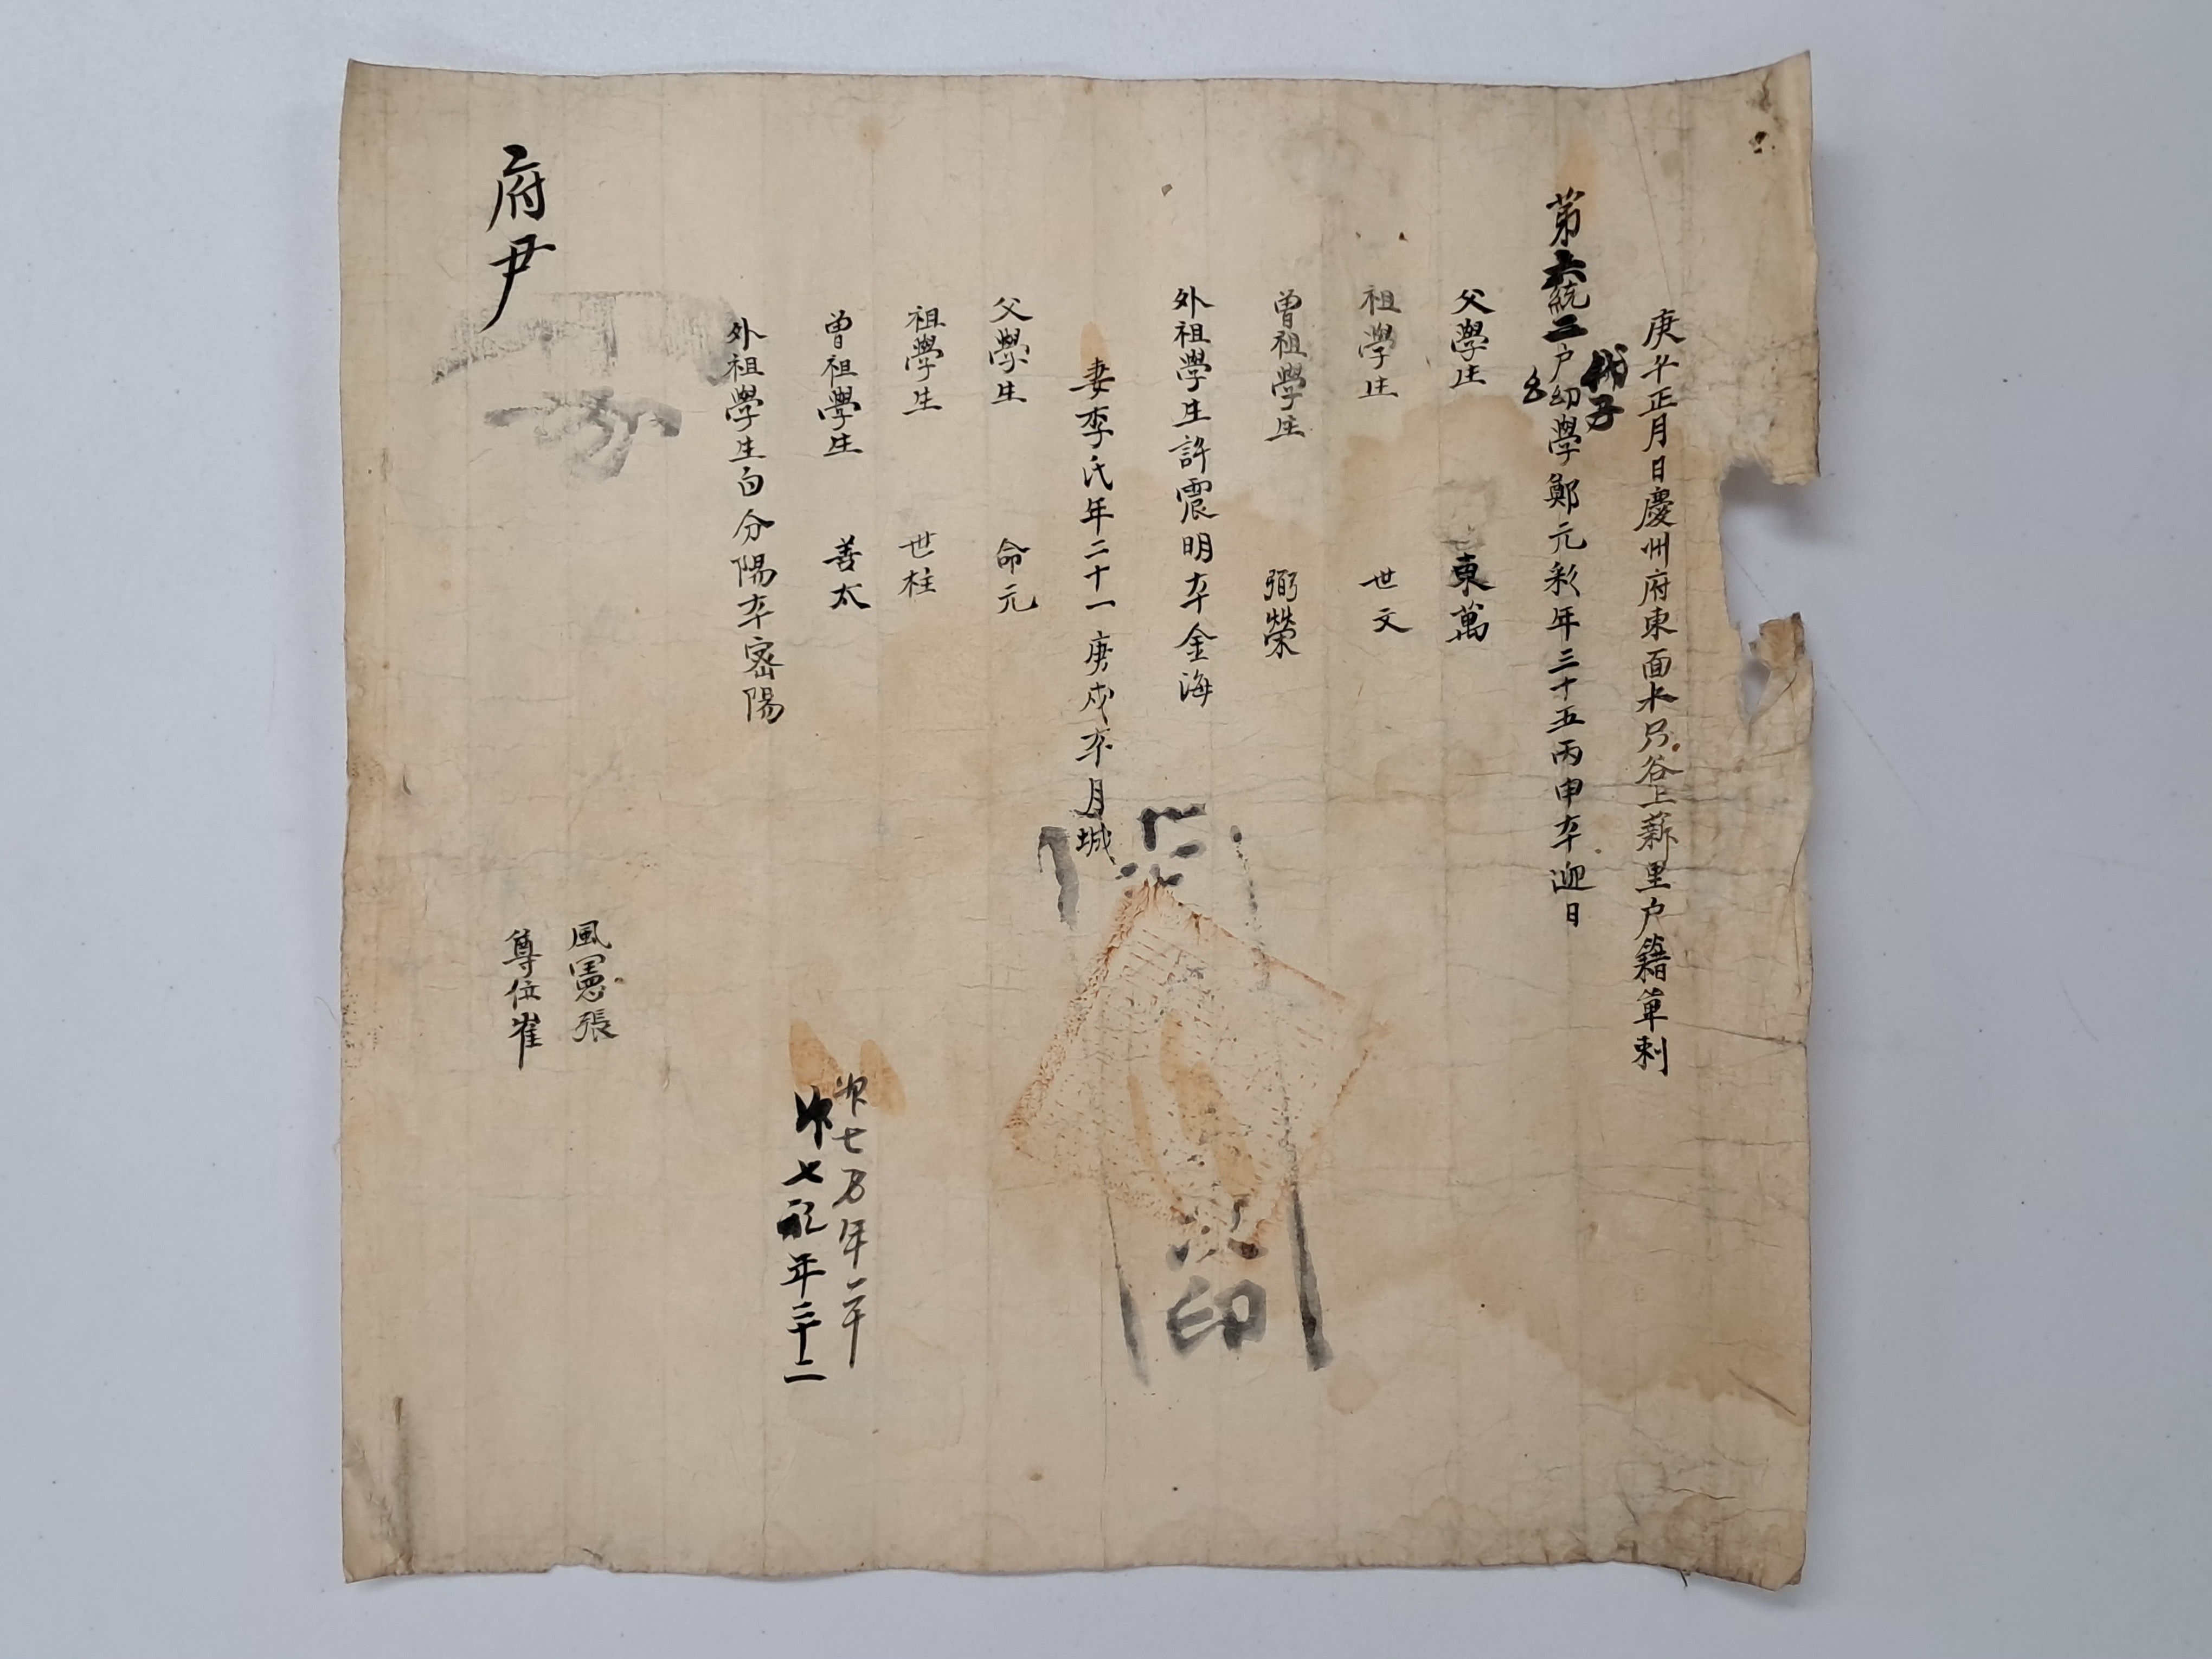 庚午正月日慶州府東面木只谷上薪里户籍單刺
代子
第六統二户幼學鄭元彩年三十五丙申本迎日
父學生 東萬
祖學生 世文
曽祖學生 弼榮
外祖學生許震明本金海
妻李氏年二十一庚戌本月城
父學生 命元
祖學生 世柱
曽祖學生 善太
外祖學生白分陽本密陽
年二十
年三十二
風憲張
尊位崔
府尹
印